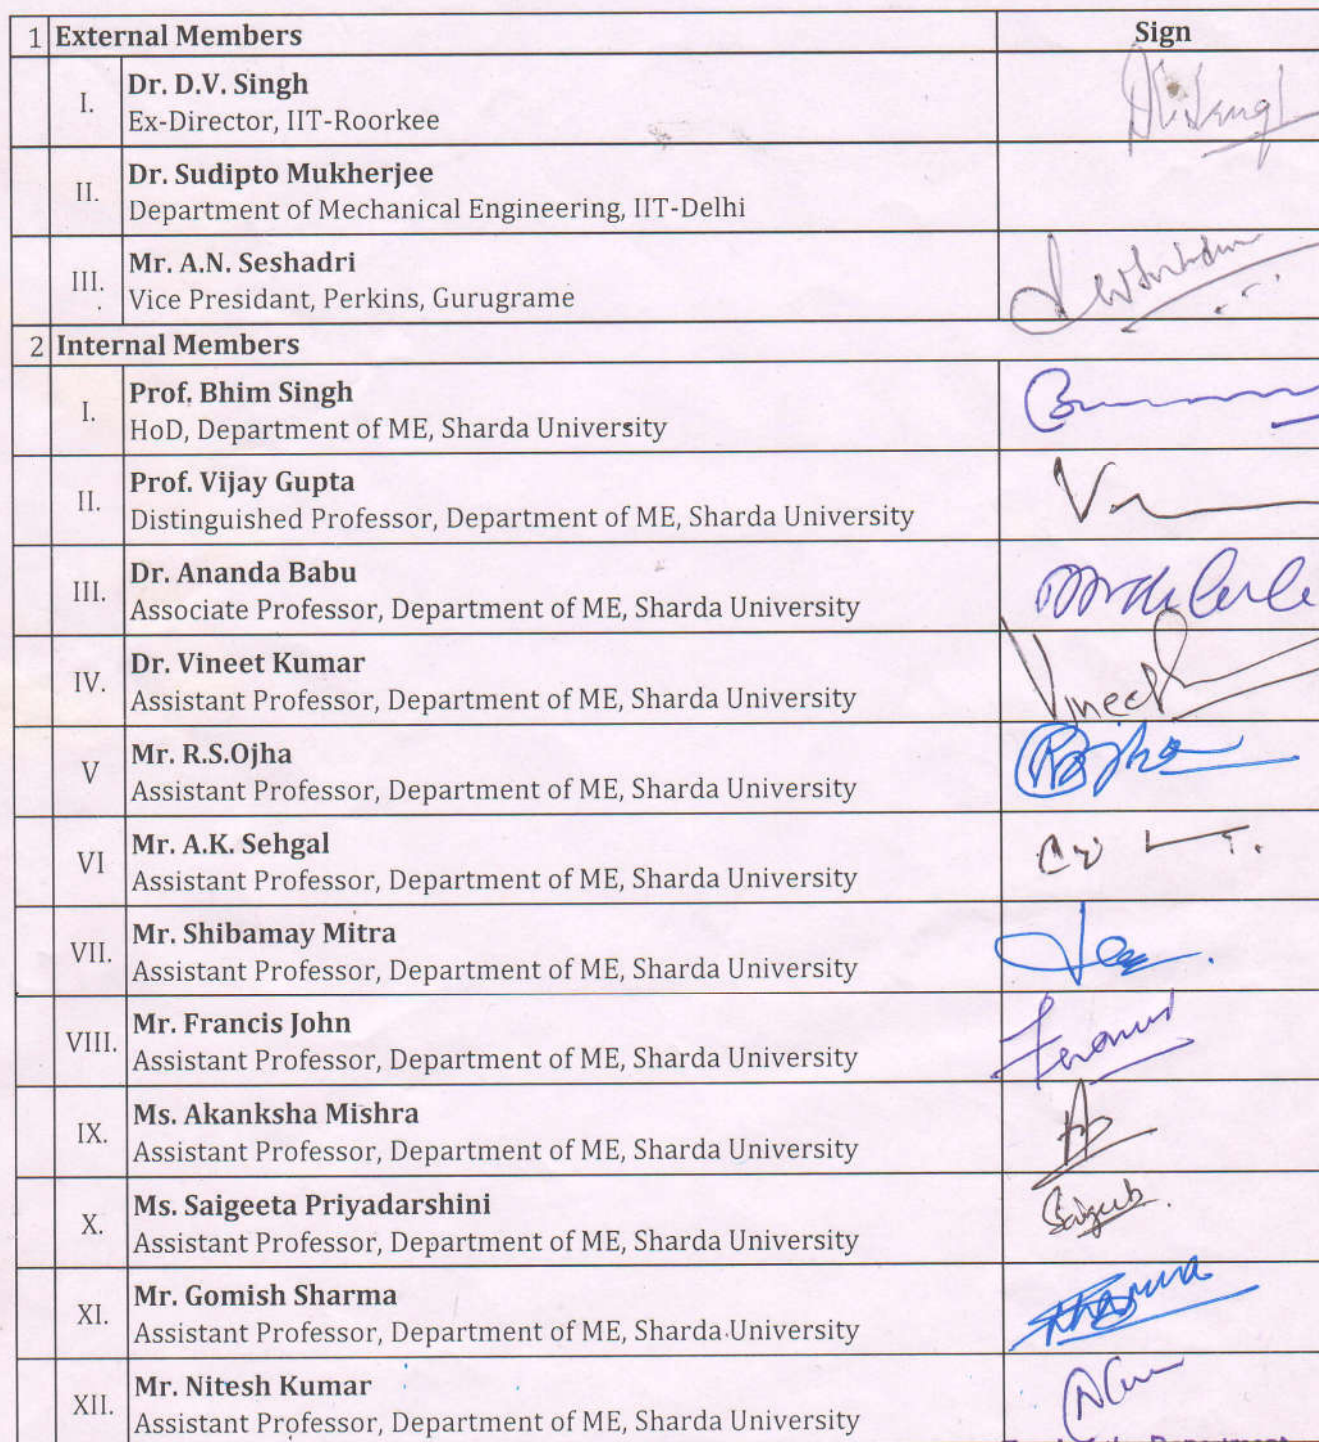 1 External Members Sign
I. Dr. D.V. Singh
Ex-Director, IIT-Roorkee
II. Dr. Sudipto Mukherjee
Department of Mechanical Engineering, IIT-Delhi
III. Mr. A.N. Seshadri
Vice Presidant, Perkins, Gurugrame
2 Internal Members
I. Prof. Bhim Singh
HoD, Department of ME, Sharda University
II. Prof. Vijay Gupta
Distinguished Professor, Department of ME, Sharda University
III. Dr. Ananda Babu
Associate Professor, Department of ME, Sharda University
IV. Dr. Vineet Kumar
Assistant Professor, Department of ME, Sharda University
Vineet
V Mr. R.S.Ojha
Assistant Professor, Department of ME, Sharda University
VI Mr. A.K. Sehgal
Assistant Professor, Department of ME, Sharda University
VII. Mr. Shibamay Mitra
Assistant Professor, Department of ME, Sharda University
VIII. Mr. Francis John
Assistant Professor, Department of ME, Sharda University
IX. Ms. Akanksha Mishra
Assistant Professor, Department of ME, Sharda University
X. Ms. Saigeeta Priyadarshini
Assistant Professor, Department of ME, Sharda University
XI. Mr. Gomish Sharma
Assistant Professor, Department of ME, Sharda University
Sharma
XII. Mr. Nitesh Kumar
Assistant Professor, Department of ME, Sharda University